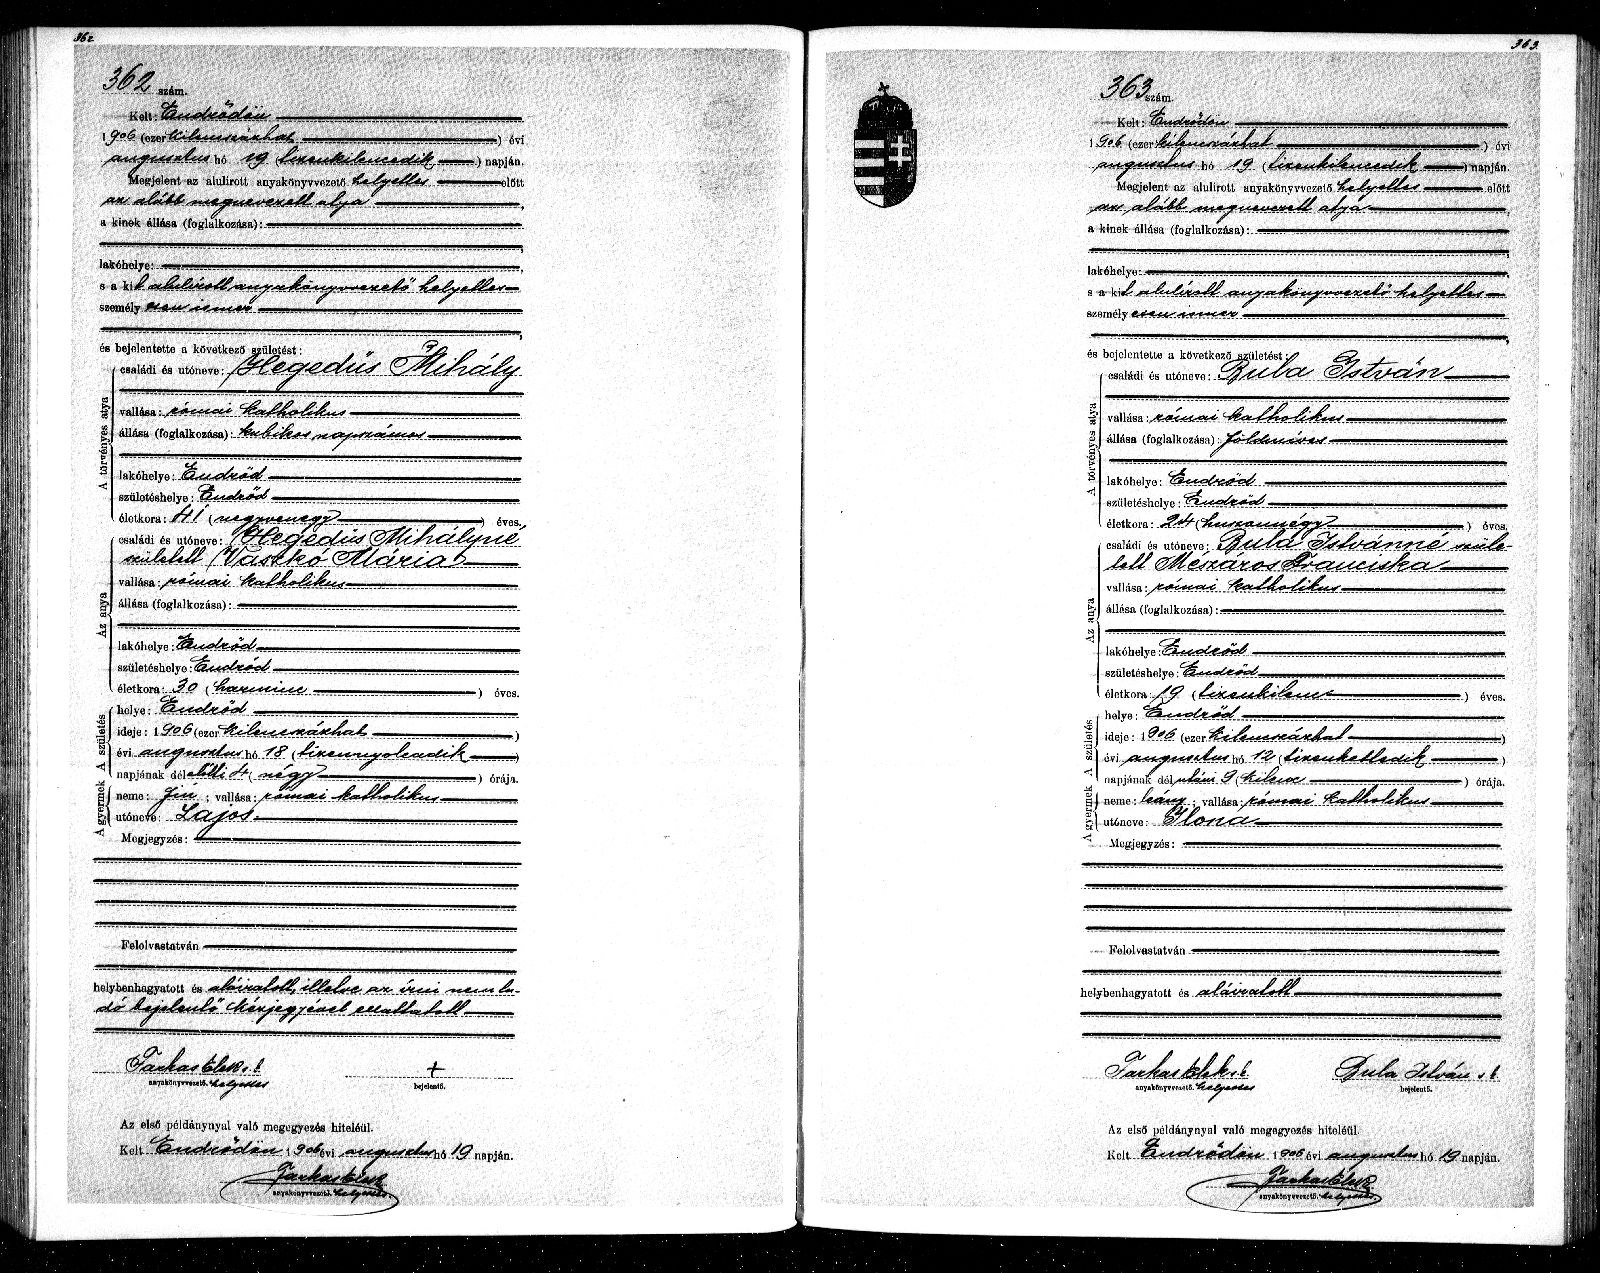 362
362 szám.
Kelt: Endrődön
1906 (ezer kilenszázhat) évi
augusztus hó 19 (tizenkilencedik) napján.
Megjelent az alulirott anyakönyvvezető helyettes előtt
az alább megnevezett atya,
a kinek állása (foglalkozása):
lakóhelye:
s a kit alulirott anyakönyvvezető helyettes
személyesen ismer
és bejelentette a következő születést:
A törvényes atya
családi és utóneve: Hegedüs Mihály
vallása: római katholikus
állása (foglalkozása): kubikos napszámos
lakóhelye: Endrőd
születéshelye: Endrőd
életkora: 41 (negyvenegy) éves.
Az anya
családi és utóneve: Hegedüs Mihályné
született Vaszkó Mária
vallása: római katholikus
állása (foglalkozása):
lakóhelye: Endrőd
születéshelye: Endrőd
életkora: 30 (harminc) éves.
A születés
helye: Endrőd
ideje: 1906 (ezer kilenszázhat)
évi augusztus hó 18 (tizennyolcadik)
napjának délelőtti 4 (négy) órája.
A gyermek
neme: fiú; vallása: római katholikus
utóneve: Lajos.
Megjegyzés:
Felolvastatván
helybenhagyatott és aláiratott, illetve az írni nem tu-
dó bejelentő kézjegyével elláttatott
Farkas Elek s. k. +
anyakönyvvezető. helyettes bejelentő.
Az első példánynyal való megegyezés hiteléül.
Kelt Endrődön 1906 évi augusztus hó 19 napján.
Farkas Elek
anyakönyvvezető. helyettes
363.
363 szám.
Kelt: Endrődön
1906 (ezer kilenszázhat) évi
augusztus hó 19 (tizenkilencedik) napján.
Megjelent az alulirott anyakönyvvezető helyettes előtt
az alább megnevezett atya,
a kinek állása (foglalkozása):
lakóhelye:
s a kit alulirott anyakönyvvezető helyettes
személyesen ismer
és bejelentette a következő születést:
A törvényes atya
családi és utóneve: Bula István
vallása: római katholikus
állása (foglalkozása): földmíves
lakóhelye: Endrőd
születéshelye: Endrőd
életkora: 24 (huszonnégy) éves.
Az anya
családi és utóneve: Bula Istvánné szüle-
tett Mészáros Franciska
vallása: római katholikus
állása (foglalkozása):
lakóhelye: Endrőd
születéshelye: Endrőd
életkora: 19 (tizenkilenc) éves.
A születés
helye: Endrőd
ideje: 1906 (ezer kilenszázhat)
évi augusztus hó 12 (tizenkettedik)
napjának délután 9 (kilenc) órája.
A gyermek
neme: leány; vallása: római katholikus
utóneve: Ilona
Megjegyzés:
Felolvastatván
helybenhagyatott és aláiratott
Farkas Elek s. k. Bula István s. k.
anyakönyvvezető. helyettes bejelentő.
Az első példánynyal való megegyezés hiteléül.
Kelt Endrődön 1906 évi augusztus hó 19 napján.
Farkas Elek
anyakönyvvezető. helyettes